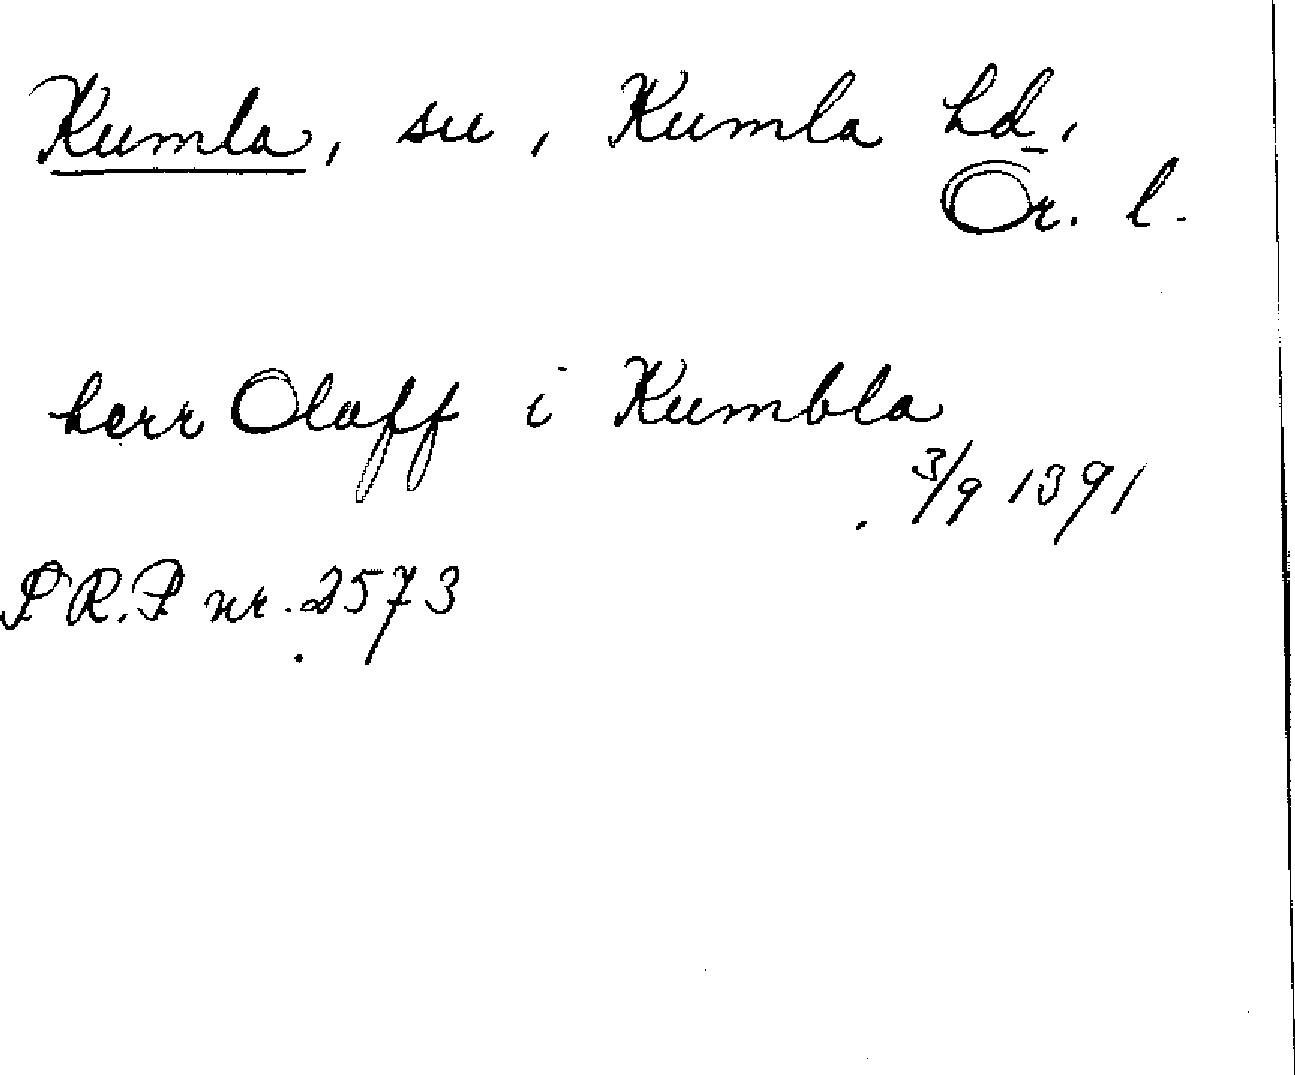 Kumla, sn, Kumla hd,
Ör. l.
herr Olaff i Kumbla
3/9 1391
P R.P nr. 2573